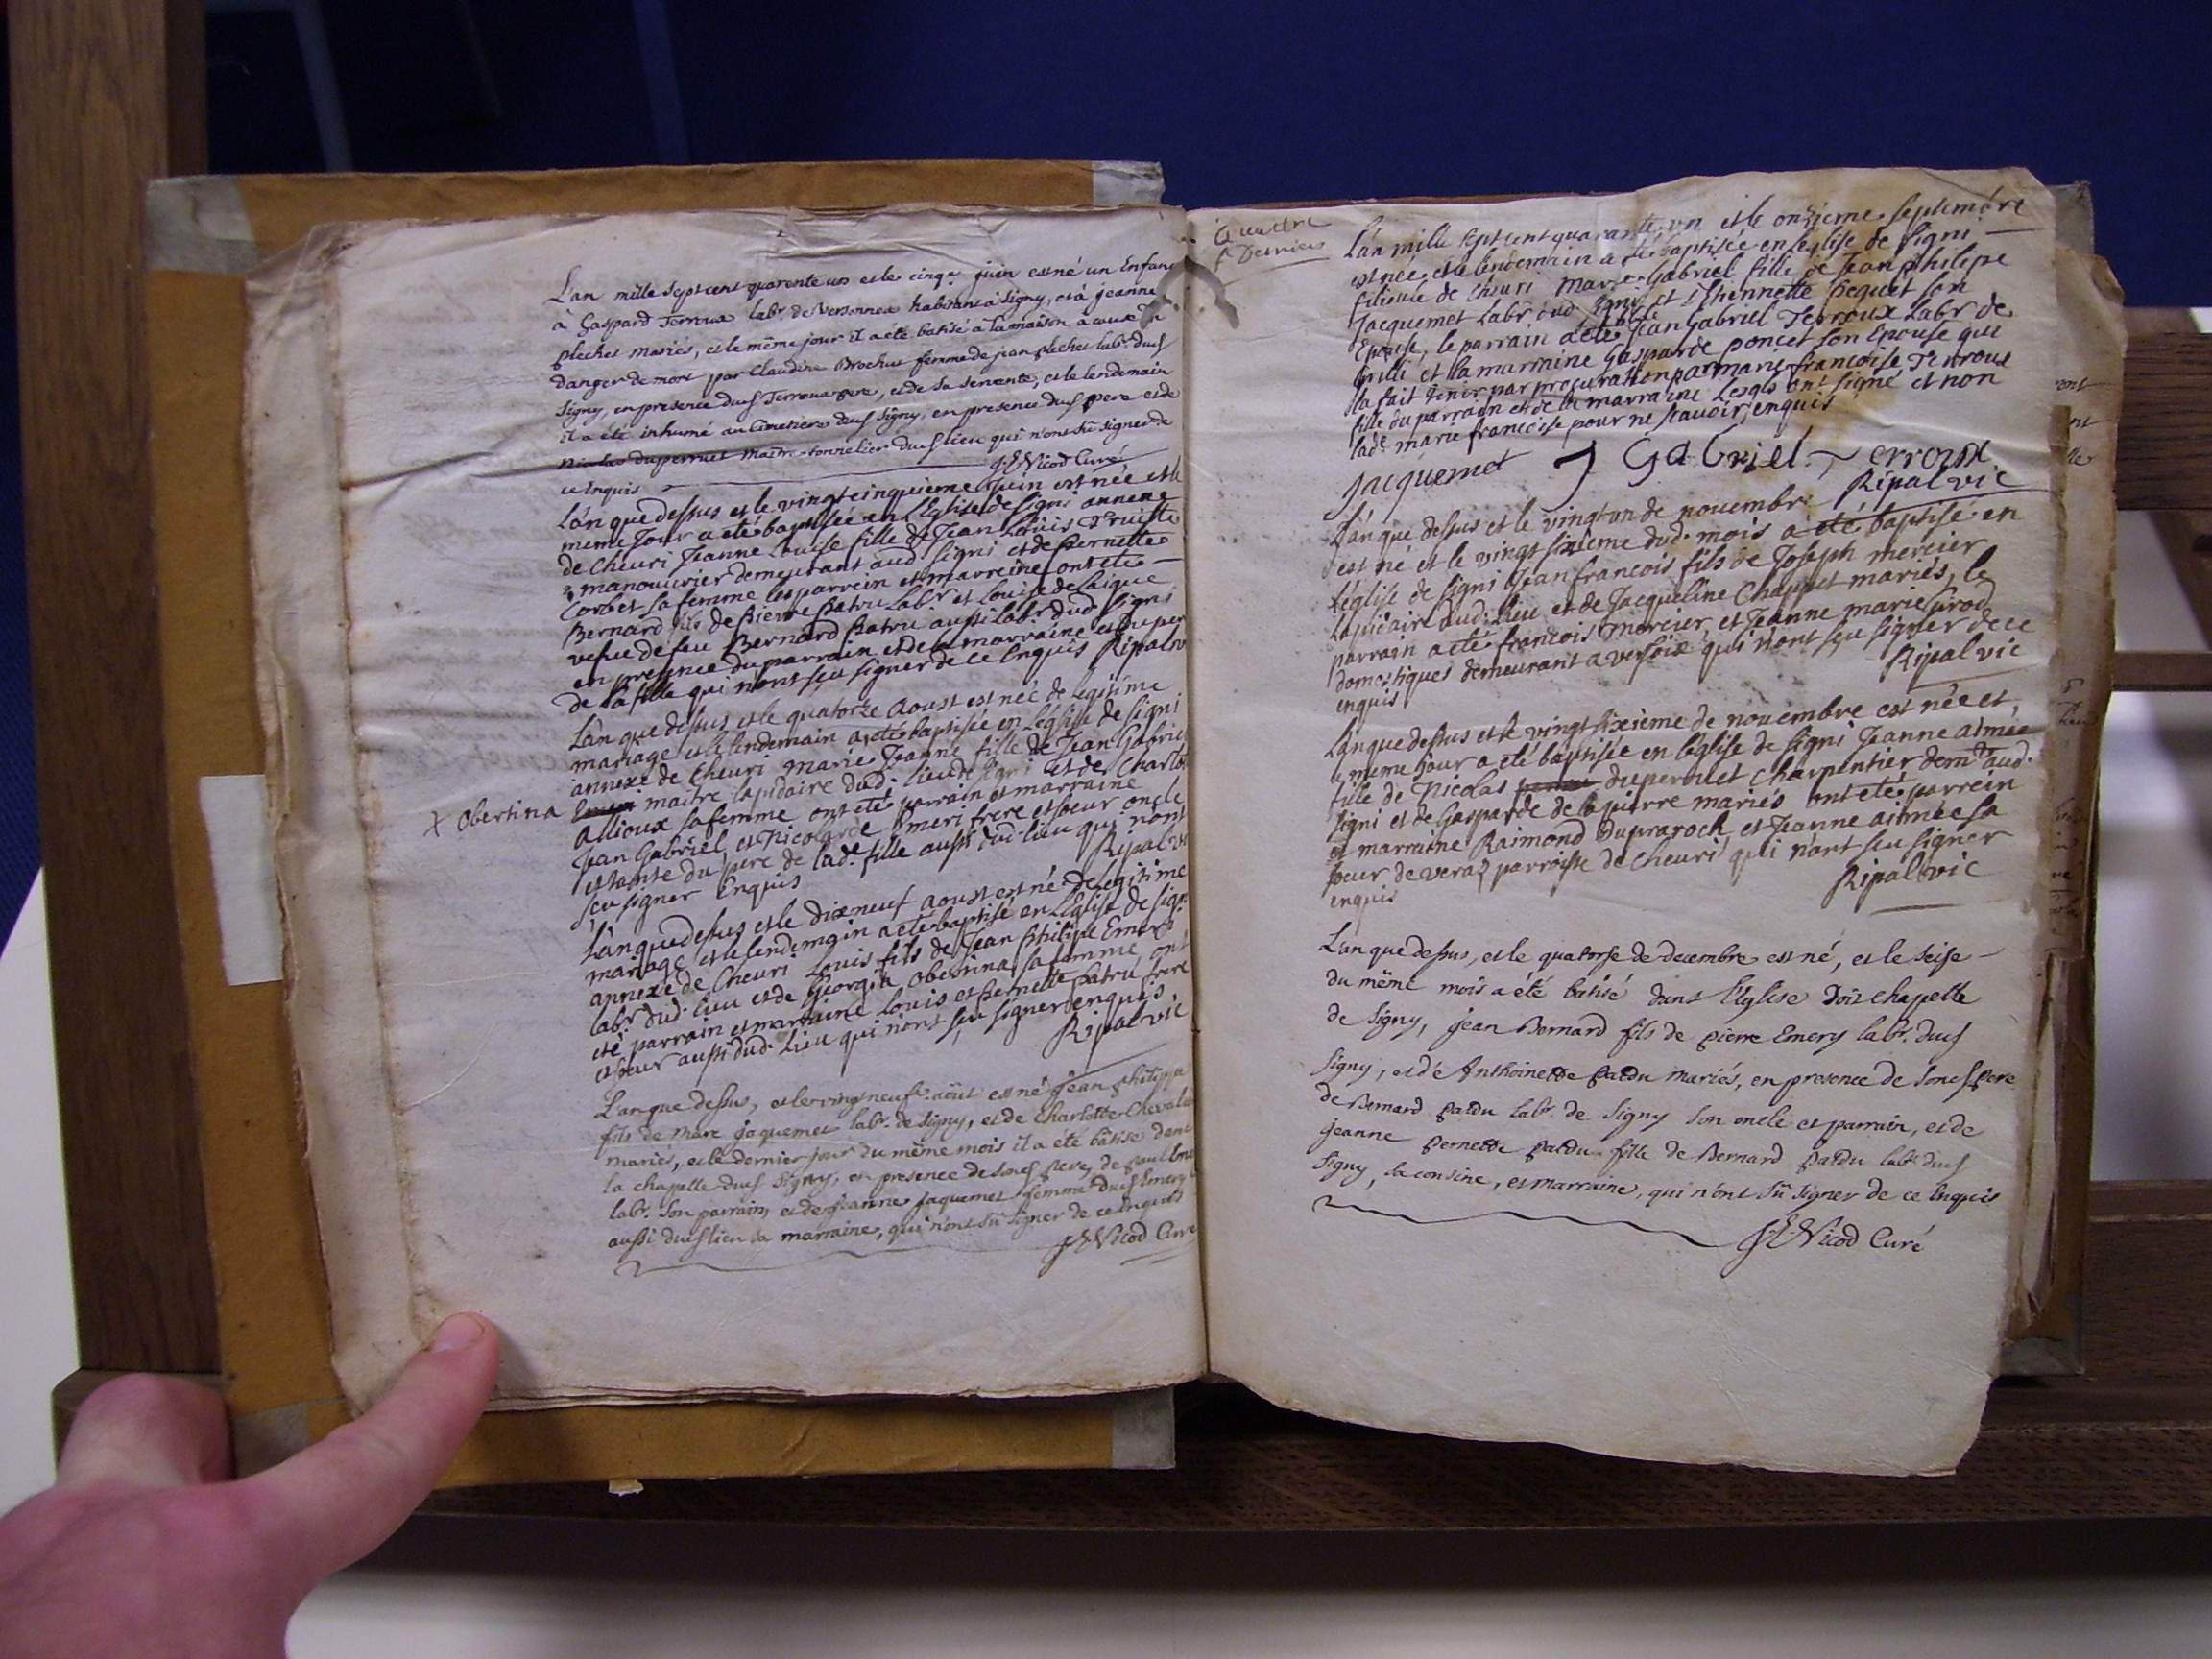 L'an mille sept cent quarente un et le cinqe. juin est né un Enfan
à Gaspard Terroux labr. de Versonnex habitant à Signy, et à jeanne
plechet mariés, et le même jour il a été batisé à la maison a cause du
danger de mort par Claudine Brochut femme de jean plechet labr. dud
Signy, en presence dud Terroux pere, et de sa servente, et le lendemain
il a été inhumé au Cimetiere dud Signy, en presence dud pere et de
Nicolas duperruet maitre tonnelier dud lieu qui n'ont sû signer de
ce Enquis Nicod Curé
L'an que dessus et le vingt cinquieme Juin est née et le
meme Jour a eté baptisée en L'Eglise de Signi annexe
de Cheuri Jeanne Louise fille de Jean Louis
manouvrier demeurant aud Signi et de Pernette
Corbet sa femme les parrein et marreine ont eté
Bernard fils de Pierre Patru Labr et Louise de Laigue
vefue de feu Bernard Patru aussi Labr dud Signi
en presence du parrain et de la marraine et du per
de la fille qui nont sçu signer de ce Enquis Ripalvi
L'an que dessus et le quatorze Aoust est née de Legitime
mariage et le lendemain a eté baptisée en L'église de Signi
annexe de Cheuri Marie Jeanne fille de Jean Gabrie
X Obertina maitre lapidaire dud. lieu de Signi et de Charlot
Allioux sa femme ont eté parrain et marraine
Jean Gabriel et Nicolarde Emeri frere et soeur oncle
et tante du pere de lade. fille aussi dud. lieu qui nont
sçu signer Enquis Ripalvi
L'an que dessus et le dixneuf aoust est né de Legitime
mariage et le lendemain a eté baptisé en L'Eglise de Sign
annexe de Cheuri Louis fils de Jean Philipe Emeri
labr. dud. lieu et de Giorgia Obertina sa femme, ont
eté parrain et marraine Louis et Pernette Patru frere
et soeur aussi dud. lieu qui n'ont sçu signer enquis
Ripalvic
L'an que dessus, et le vingneufe. août est né jean philippe
fils de Marc jaquemet labr. de Signy, et de Charlotte Cheval
mariés, et le dernier jour du même mois il a été bâtisé dans
la chapelle dud Signy, en presence de sond pere, de paul
labr. son parrain, et de jeanne jaquemet femme dud Emery
aussi dud lieu sa marraine, qui n'ont sû signer de ce enquis
Nicod Curé
quattre
Deniers
L'an mille sept cent quarante un et le onzieme septembre
est née et le lendemain a eté baptisée en L'eglise de Signi
filieule de Cheuri Marie Gabriel fille de Jean philipe
Jacquemet Labr. dud Signi et d'Ethiennette Pequet son
Epouse, le parrain a eté Jean Gabriel Terroux Labr de
Grilli et la marraine Gasparde Poncet son Epouse qui
la fait tenir par procuration par marie francoise Terroux
fille du parrain et de la marraine Lesqls ont signé et non
lade. marie francoise pour ne scauoir enquis
Jacquemet J Gabriel Terroux
Ripalvic
L'an que dessus et le vingtun de novembre
est né et le vingt sixieme dud. mois a eté baptisé en
L'église de Signi Jean francois fils de Joseph mercier
Lapidaire dud. Lieu et de Jacqueline Chappet mariés, le
parrain a eté francois Mercier, et Jeanne marie Grod
domestiques demeurant a versoix qui n'ont sçu signer de ce
enquis Ripalvic
L'an que dessus et le vingt sixieme de novembre est née et
le meme jour a eté baptisée en l'église de Signi Jeanne aimée
fille de Nicolas duperouet charpentier demt. aud.
Signi et de Gasparde de la pierre mariés ont eté parrein
et marraine Raimond Dupraroch et Jeanne aimée sa
soeur de veraz parroisse de Cheuri qui n'ont sçu signer
enquis Ripalvic
L'an que dessus, et le quatorse de decembre est né, et le seise
du même mois a été batisé dans l'Eglise Doit chapelle
de Signy, jean Bernard fils de pierre Emery labr. dud
Signy, et de Anthoinette patdu mariés, en presence de sond pere
de Bernard patdu labr. de Signy son oncle et parrain, et de
jeanne pernette patdu fille de Bernard patdu labr dud
Signy, sa cousine, et marraine, qui n'ont sû signer de ce enquis
Nicod Curé